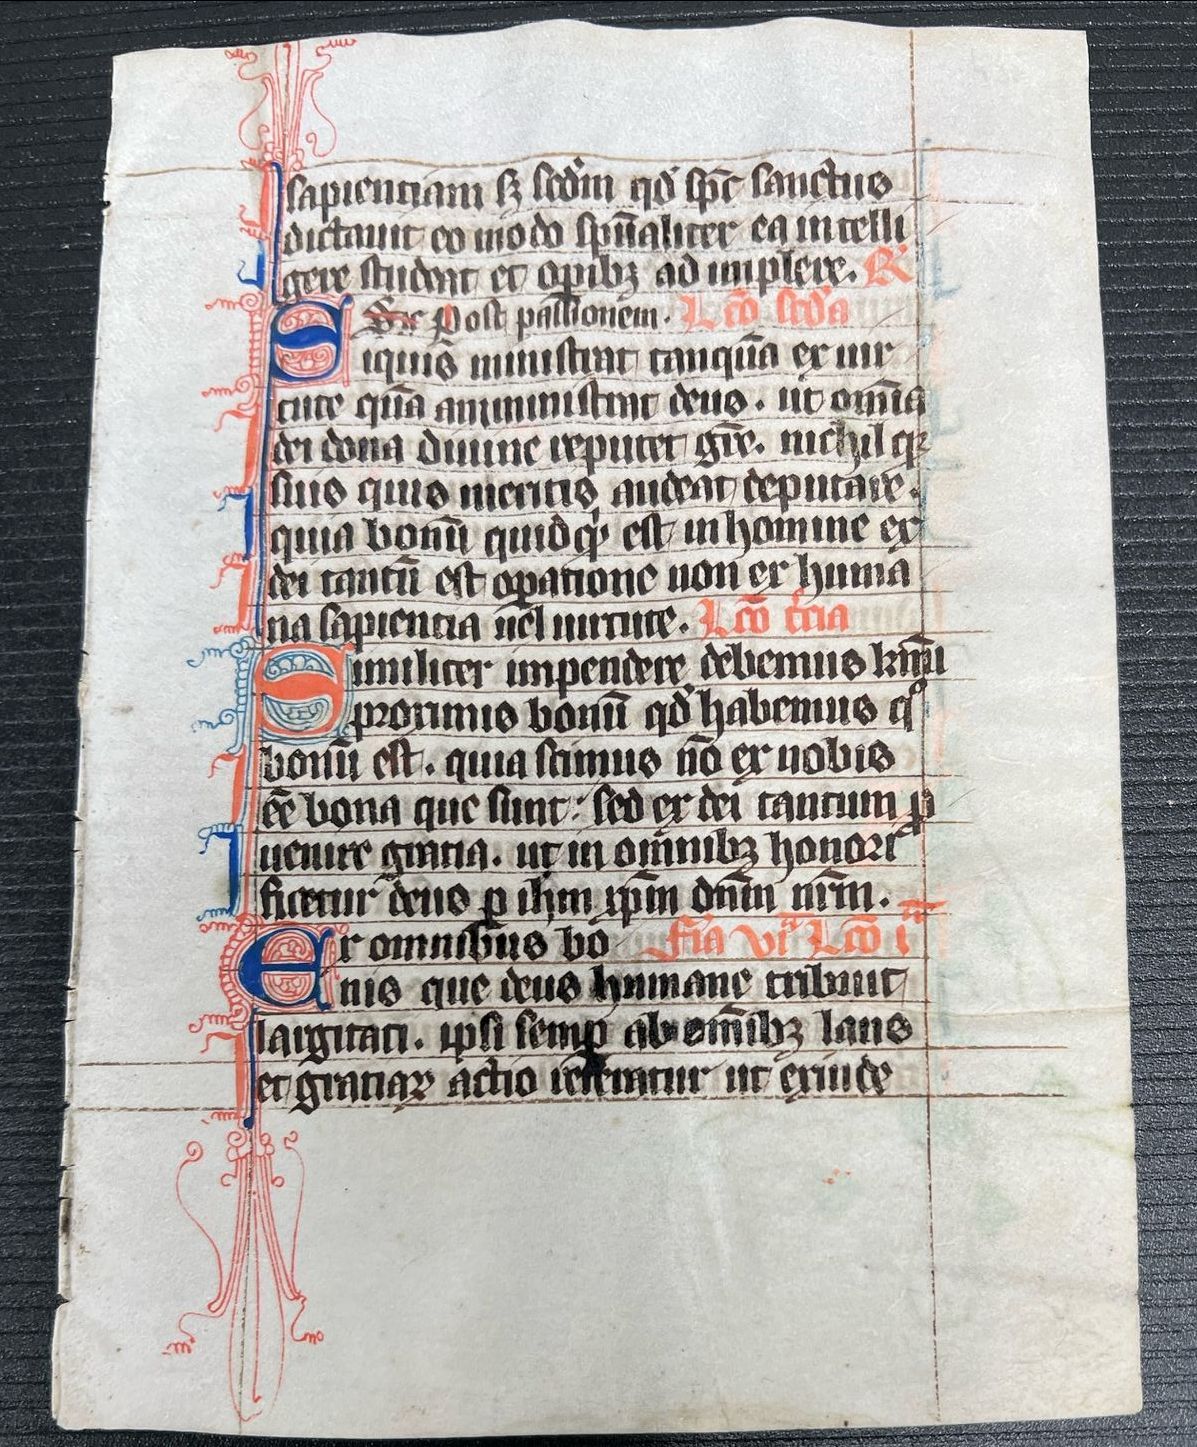 sapientiam sꝫ scd̄m qd̄ sp̄c sanctus
dictauit eo modo sp̄ualiter ea intelli
gere student et oꝑibꝫ ad implere. ℟
Post passionem. Lc̄o scd̄a
Siquis ministrat tanquā ex uir
tute quā amministrat deus. ut om̄ia
dei dona diuine reputet gr̄e. nichil qꝫ
suis quis meritis audeat deputare.
quia bonū quidqͥd est in homine ex
dei tantū est oꝑatione non ex huma
na sapientia uel uirtute. Lc̄o t̄cia
Similiter impendere debemus
proximis bonū qd̄ habemus qͦ
bonū est. quia scimus nō ex nobis
eē bona que sunt: sed ex dei tantum ꝓ
uenire gratia. ut in omnibꝫ honori
ficetur deus ꝑ ihm xp̄m dn̄m nr̄m.
Ex omnibus bo Fr̄ia vıͣ Lc̄o ıͣ
nis que deus humane tribuit
largitati. ipsi semꝑ ab om̄ibꝫ laus
et gratiaꝝ actio referatur ut exinde